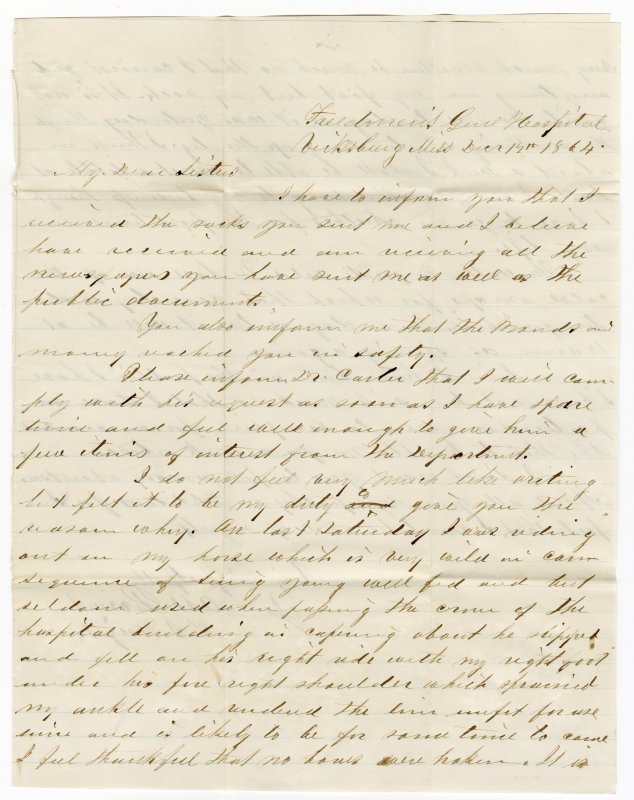 Freedmen's Genl Hospital
Vicksburg Miss Decr 1864.
My Dear Sister
I have to inform you that I
received the socks you sent me and I believe
have received and am receiving all the
newspapers you have sent me as well as the
public documents.
You also inform me that the Bonds and
money reached you in safety.
Please inform Dr. Carter that I will com-
ply with his request as soon as I have spare
time and feel well enough to give him a
few items of interest from the Department.
I do not feel very much like writing
but felt it to be my duty to give you the
reason why. On last Saturday I was riding
out on my horse which is very wild in con-
sequence of being young well fed and but
seldom used when passing the corner of the
hospital building in capering about he slipped
and fell on his right side with my right foot
under his fore right shoulder which sprained
my ankle and rendered the limb unfit for use
since and is likely to be for some time to come
I feel thankful that no bones were broken. It is